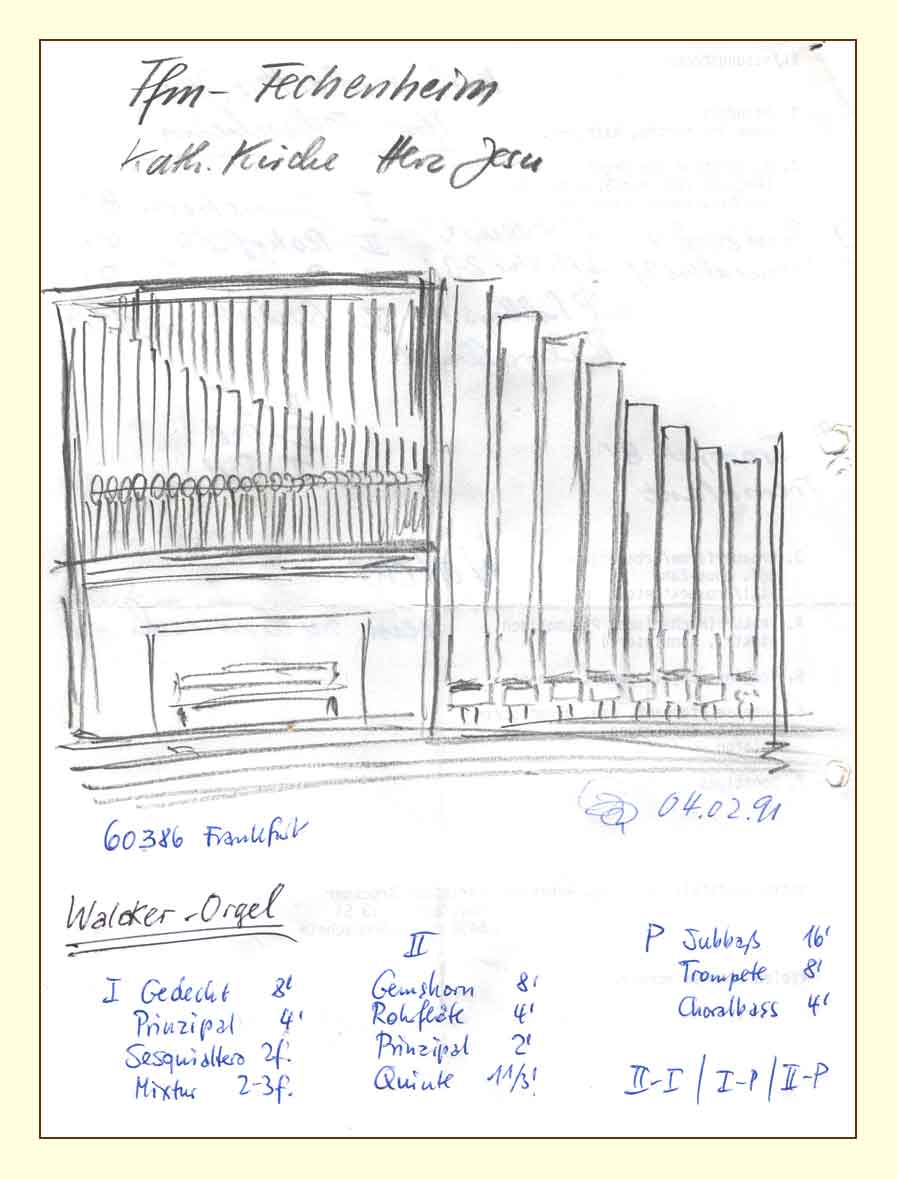 Ffm- Fechenheim
Kath. Kirche Herz Jesu
04.02.91
60386 Frankfurt
Walcker-Orgel
I Gedeckt 8'
Prinzipal 4'
Sesquialtera 2f.
Mixtur 2-3f.
II
Gemshorn 8'
Rohrflöte 4'
Prinzipal 2'
Quinte 11/3'
P Subbaß 16'
Trompete 8'
Choralbass 4'
II-I / I-P / II-P